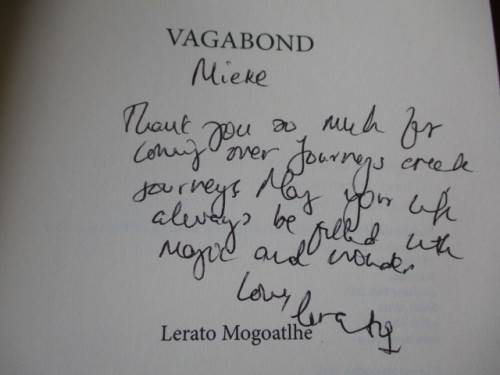 VAGABOND
Mieke
Thank you so much for
coming over Journeys create
journeys May your life
always be filled with
magic and wonder
Love,
Lerato
Lerato Mogoatlhe